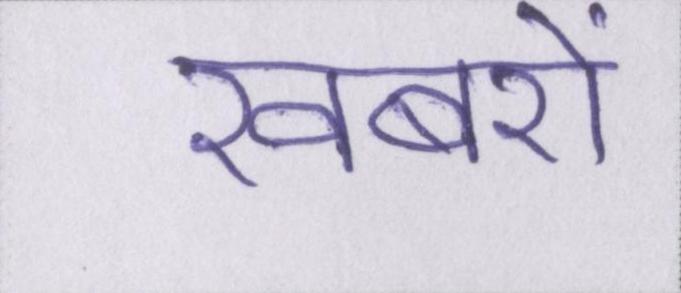 खबरों